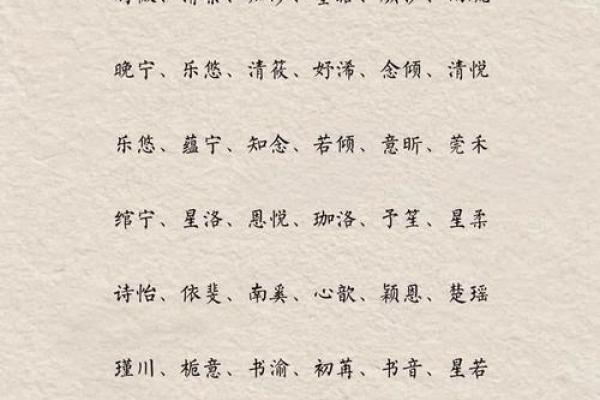 晚宁、乐悠、清筱、好浠、念倾、清悦
乐悠、蕴宁、知念、若倾、意昕、莞禾
绾宁、星洛、恩悦、珈洛、予笙、星柔
诗怡、依斐、南奚、心歆、颖恩、楚瑶
瑾川、栀意、书渝、初苒、书音、星若